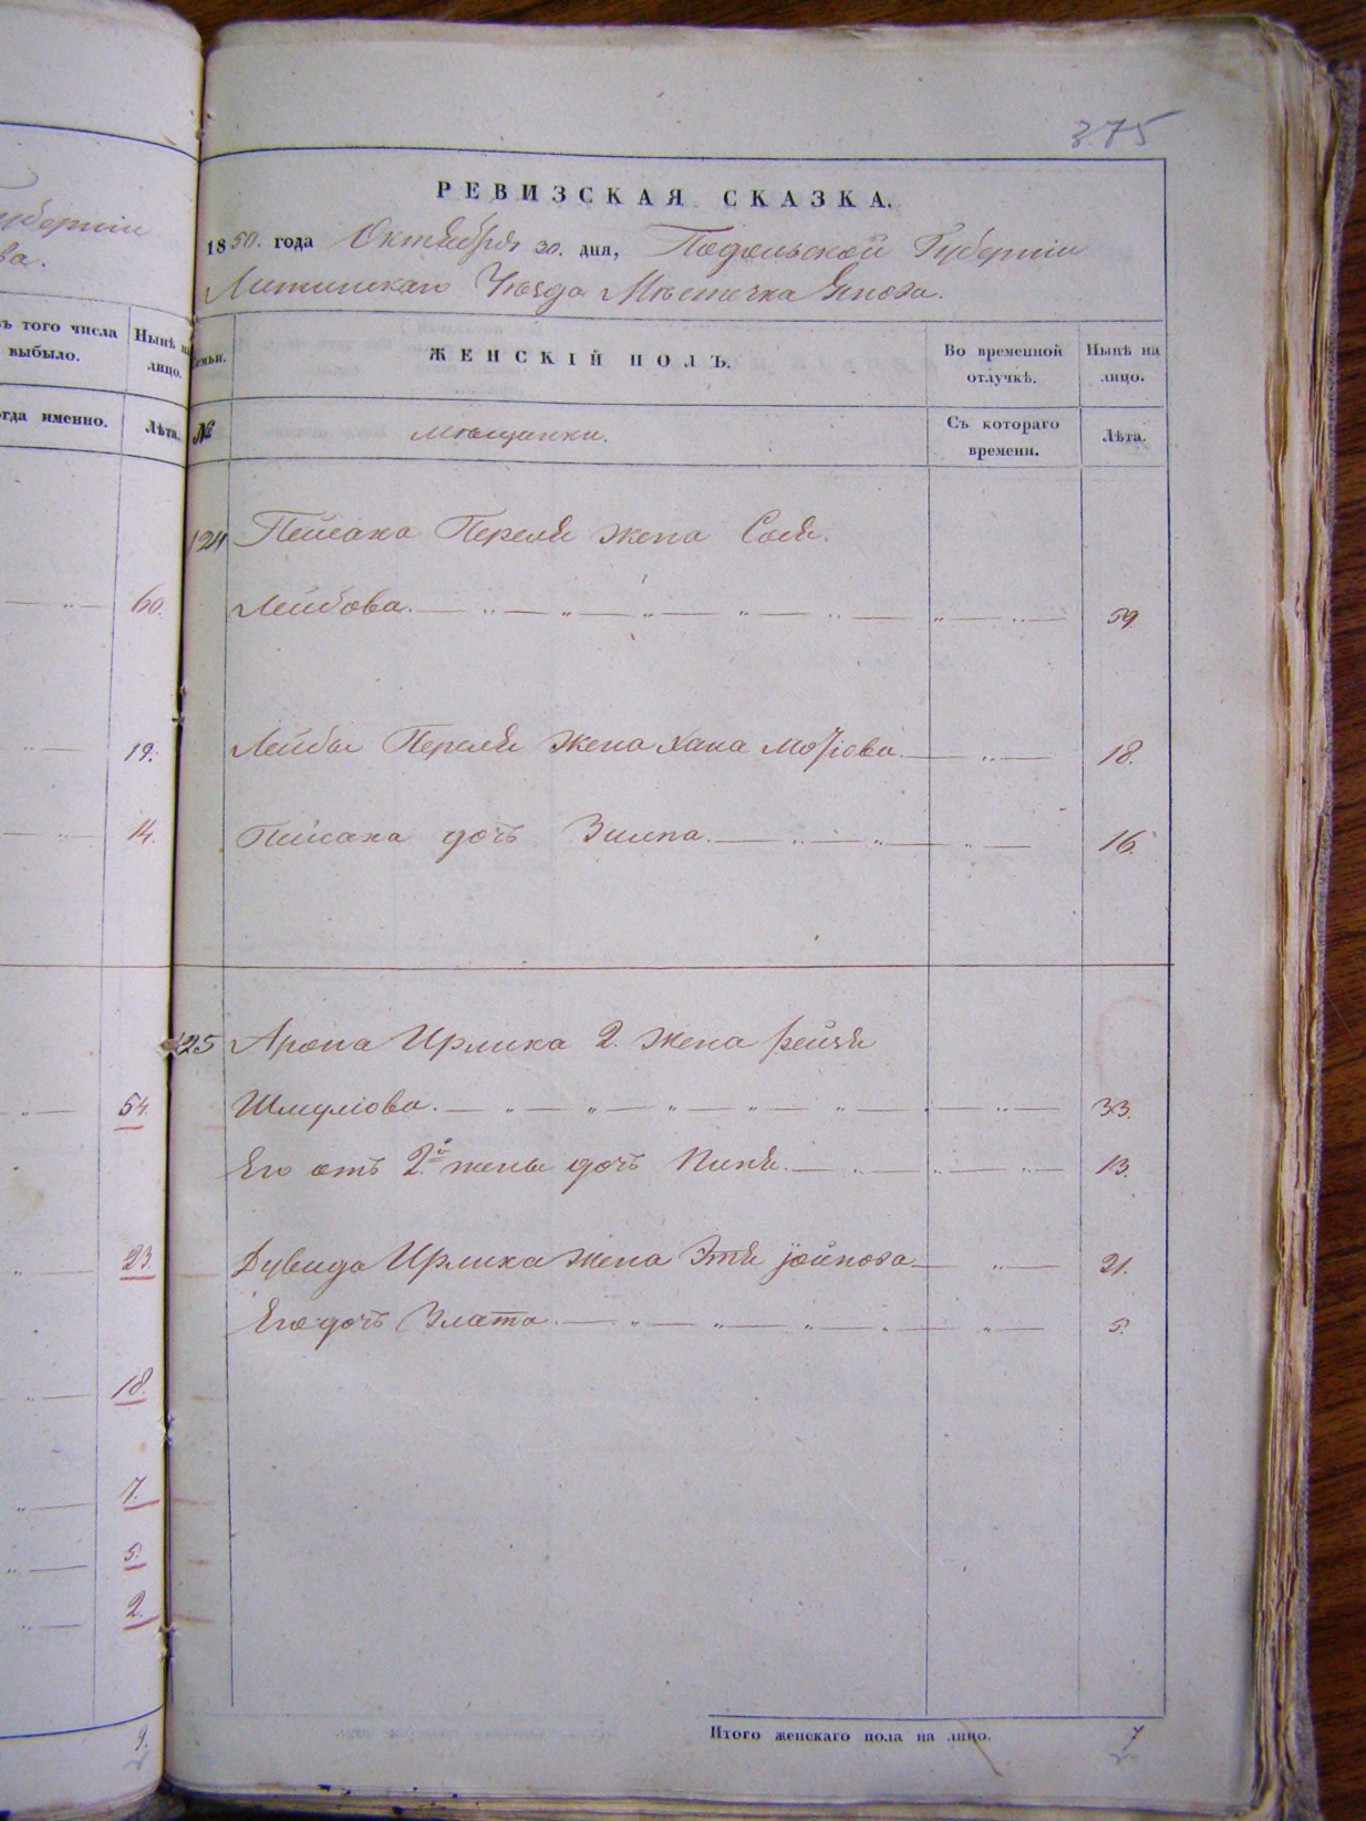 губерніи
ва.
ъ того числа
выбыло.
Нынѣ на
лицо.
огда именно.
Лѣта.
60.
19.
14.
54.
23.
18.
7.
5.
2.
9.
375
РЕВИЗСКАЯ СКАЗКА.
1850. года Октября 30. дня, Подольской Губерніи
Литинскаго Уѣзда Мѣстечка Янова.
Семьи.
ЖЕНСКІЙ ПОЛЪ.
Во временной
отлучкѣ.
Нынѣ на
лицо.
№
Мѣщанки.
Съ котораго
времени.
Лѣта.
124 Пейсаха Переля жена Сося
Лейбова. 59.
Лейбы Переля жена Хана Мошкова 18.
Пейсаха дочь 16.
125 Арона Ирлиха 2. жена Рейзя
Шмулiова. 33.
Его отъ 2й жены дочь 13.
Дувида Ирлиха жена Этя Іойнова 21.
Его дочь Злата. 5.
Итого женскаго пола на лицо. 7